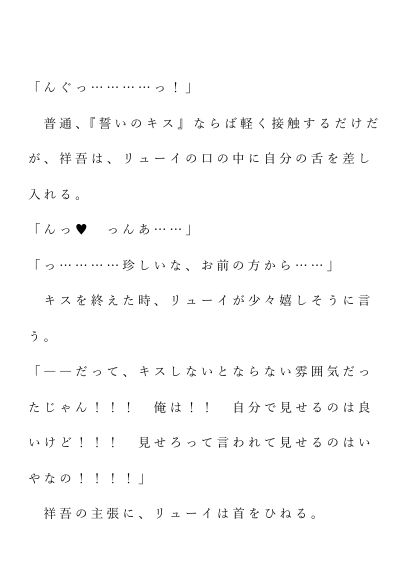 「んぐっ…………っ！」
　普通、『誓いのキス』ならば軽く接触するだけだ
が、祥吾は、リューイの口の中に自分の舌を差し
入れる。
「んっ♥　っんあ……」
「っ…………珍しいな、お前の方から……」
　キスを終えた時、リューイが少々嬉しそうに言
う。
「――だって、キスしないとならない雰囲気だっ
たじゃん！！！　俺は！！　自分で見せるのは良
いけど！！！　見せろって言われて見せるのはい
やなの！！！！」
　祥吾の主張に、リューイは首をひねる。